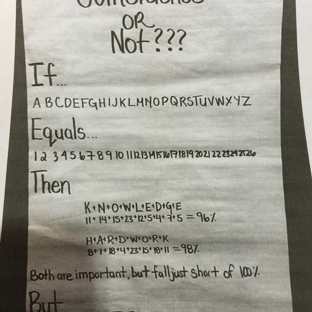 OR
Not???
If...
A B C D E F G H I J K L M N O P Q R S T U V W X Y Z
Equals...
1 2 3 4 5 6 7 8 9 10 11 12 13 14 15 16 17 18 19 20 21 22 23 24 25 26
Then
K+N+O+W+L+E+D+G+E
11+14+15+23+12+5+4+7+5=96%
H+A+R+D+W+O+R+K
8+1+18+4+23+15+18+11=98%
Both are important, but fall just short of 100%
But